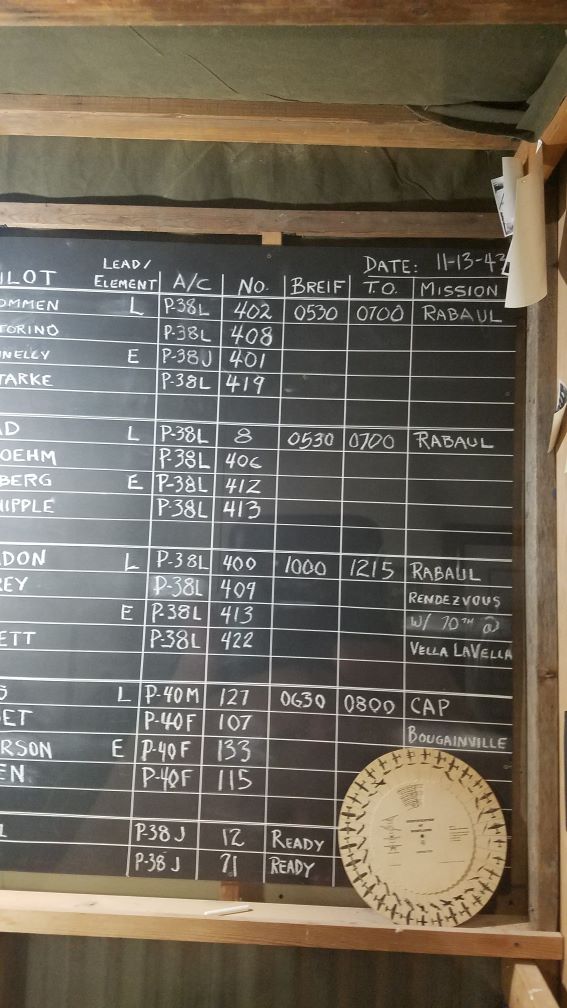 DATE: 11-13-43
ILOT LEAD/ELEMENT A/C No. BREIF T.O. MISSION
OMMEN L P-38L 402 0530 0700 RABAUL
TORINO P-38L 408
NELLY E P-38J 401
TARKE P-38L 419
AD L P-38L 8 0530 0700 RABAUL
OEHM P-38L 406
BERG E P-38L 412
HIPPLE P-38L 413
DON L P-38L 400 1000 1215 RABAUL
REY P-38L 409 RENDEZVOUS
E P-38L 413 W/ 70TH @
ETT P-38L 422 VELLA LAVELLA
L P-40M 127 0630 0800 CAP
ET P-40F 107 BOUGAINVILLE
RSON E P-40F 133
EN P-40F 115
L P-38J 12 READY
P-38J 71 READY